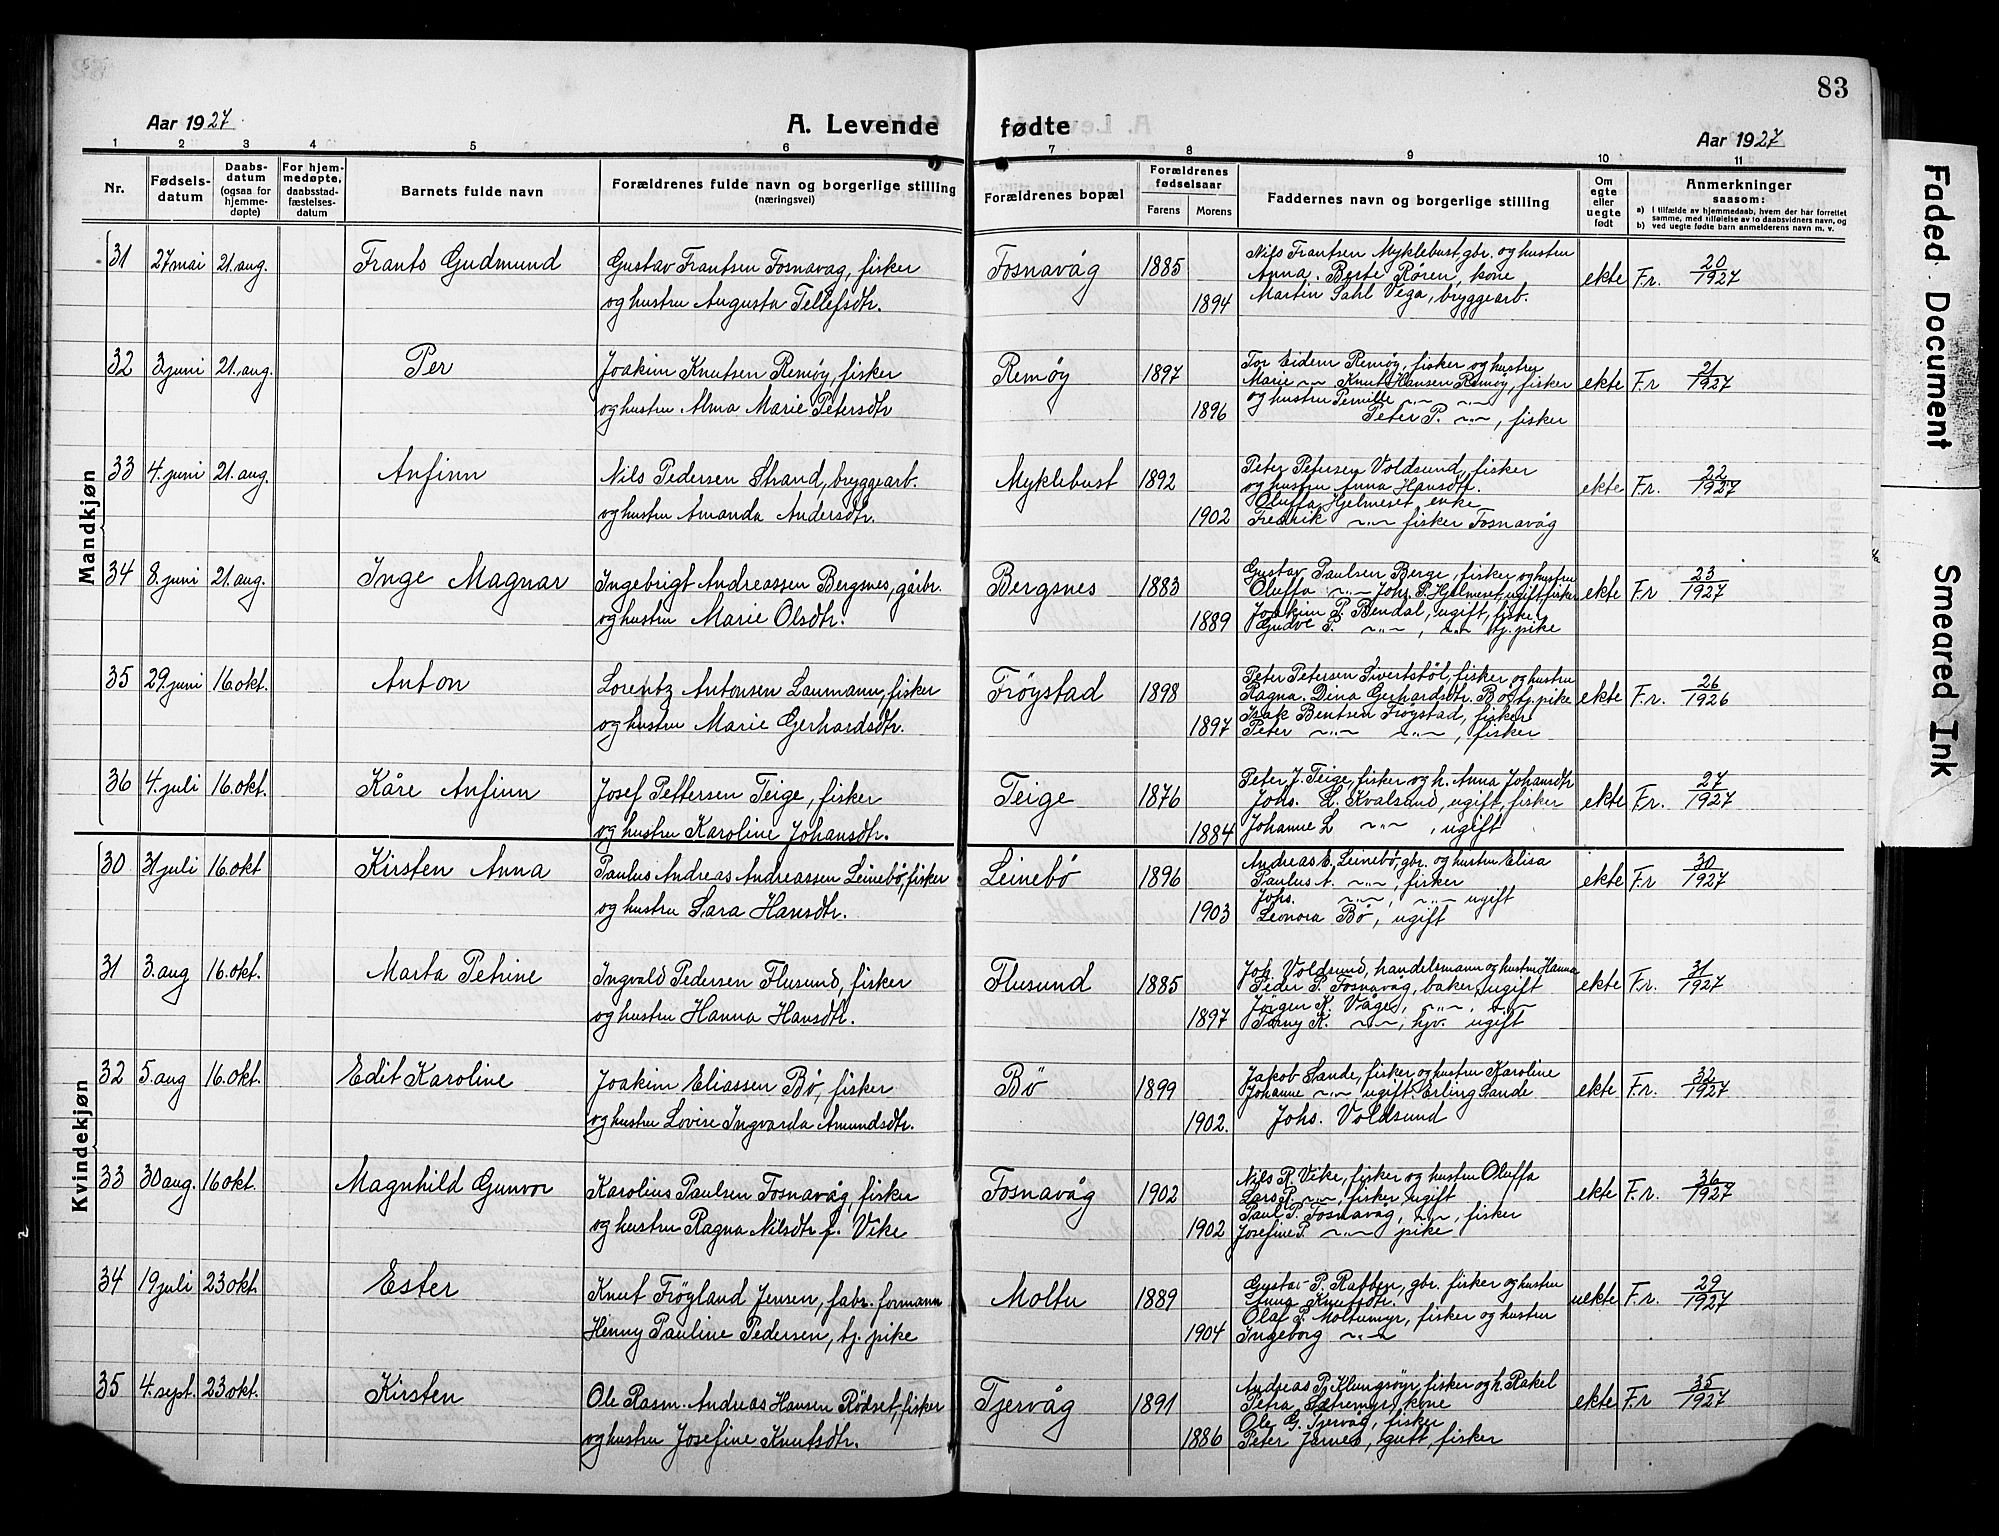 83
Aar 1927
A. Levende
fødte
Aar 1927
1 2 3 4 5 6 7 8 9 10 11
Nr.
Fødsels-
datum
Daabs-
datum
(ogsaa for
hjemme-
døpte)
For hjem-
medøpte,
daabsstad-
fæstelses-
datum
Barnets fulde navn
Forældrenes fulde navn og borgerlige stilling
(næringsvei)
Forældrenes bopæl
Forældrenes
fødselsaar
Farens
Morens
Faddernes navn og borgerlige stilling
Om
egte
eller
uegte
født
Anmerkninger
saasom:
a) I tilfælde av hjemmedaab, hvem der har forrettet
samme, med tilføielse av to daabsvidners navn, og
b) ved uegte fødte barn anmelderens navn m. v.
Mandkjøn
31 27 mai 21. aug. Frants Gudmund
Gustav Frantsen Fosnavåg, fisker
og hustru Augusta Tellefsdtr.
Fosnavåg 1885 1894
Nils Frantsen Myklebust, gbr. og hustru
Anna. Berte Røren, kone
Martin Sahl Vega, bryggearb.
ekte F.r. 20/1927
32 3. juni 21. aug. Per
Joakim Knutsen Remøy, fisker
og hustru Alma Marie Petersdtr
Remøy 1897 1896
Tor Eidem Remøy, fisker og hustru
Marie -"- Knut Hansen Remøy, fisker
og hustru Pernille -"- -"-
Peter P. -"-, fisker
ekte F.r 21/1927
33 4. juni 21. aug. Anfinn
Nils Pedersen Strand, bryggearb.
og hustru Amanda Andersdtr.
Myklebust 1892 1902
Peter Petersen Voldsund, fisker
og hustru Anna Hansdtr.
Oluffa Hjelmeset enke
Fredrik -"- fisker Fosnavåg
ekte F.r. 22/1927
34 8. juni 21. aug. Inge Magnar
Ingebrigt Andreassen Bergsnes, gårbr.
og hustru Marie Olsdtr.
Bergsnes 1883 1889
Gustav Paulsen Berge, fisker og hustru
Oluffa -"- Joh. P. Hjelmeset, ugift, fisker
Joakim P. Bendal, ugift, fisker
P. -"-, -"- tj. pike
ekte F.r 23/1927
35 29. juni 16. okt. Anton
Lorentz Antonsen Laumann, fisker
og hustru Marie Gerhardsdtr.
Frøystad 1898 1897
Peter Petersen Sivertstøl, fisker og hustru
Ragna. Dina Gerhardsdtr. Bø tj. pike
Isak Bentsen Frøystad, fisker
Peter -"- -"-, fisker
ekte F.r. 26/1926
36 4. juli 16. okt. Kåre Anfinn
Josef Pettersen Teige, fisker
og hustru Karoline Johansdtr.
Teige 1876 1884
Peter J. Teige, fisker og h. Anna Johansdtr
Johs. L. Kvalsund, ugift, fisker
Johanne L -"-, ugift
ekte F.r. 27/1927
Kvindekjøn
30 31 juli 16. okt Kirsten Anna
Paulus Andreas Andreassen Leinebø, fisker
og hustru Sara Hansdtr.
Leinebø 1896 1903
Andreas E. Leinebø, gbr. og hustru Elisa
Paulus A. -"-, fisker
Johs. -"-, -"- ugift
Leonora Bø, ugift
ekte F.r 30/1927
31 3. aug 16. okt. Marta Petrine
Ingvald Pedersen Flusund, fisker
og hustru Hanna Hansdtr.
Flusund 1885 1897
Joh. Voldsund, handelsmann og hustru Hanna
Peder P. Fosnavåg, baker, ugift
Jørgen K. Våge, -"-, -"-
K. -"-, hjv. ugift
ekte F.r. 31/1927
32 5. aug 16. okt. Edit Karoline
Joakim Eliassen Bø, fisker
og hustru Lovise Ingvarda Amundsdtr.
Bø 1899 1902.
Jakob Sande, fisker og hustru Karoline
Johanne -"- ugift. Erling Sande
Johs. Voldsund
ekte F.r. 32/1927
33 30 aug. 16 okt. Magnhild Gunvor
Karolius Paulsen Fosnavåg, fisker
og hustru Ragna Nilsdtr f. Vike
Fosnavåg 1902 1902
Nils R. Vike, fisker og hustru Oluffa
Lars P. -"-, fisker, ugift
Paul P. Fosnavåg, -"-, fisker
Josefine P. -"- pike
ekte F.r. 36/1927
34 19 juli 23 okt Ester
Knut Frøyland Jensen, fabr. formann
Henny Pauline Pedersen, tj. pike
Moltu 1889 1904
Gustav P. Rabben, gbr. fisker og hustru
Anna Knutsdtr.
Olaf P. Moltumyr, fisker og hustru
Ingeborg -"-
uekte F.r. 29/1927
35 4. sept. 23 okt. Kirsten
Ole Rasm. Andreas Hansen Rødset, fisker
og hustru Josefine Knutsdtr.
Tjervåg 1891 1886
Andreas P. Klungsøyr, fisker og h. Rakel
Petra Sætremyr, kone
Ole G. Tjervåg, fisker
Peter Jarnes, gutt, fisker
ekte F.r 35/1927
Faded Document
Smeared Ink